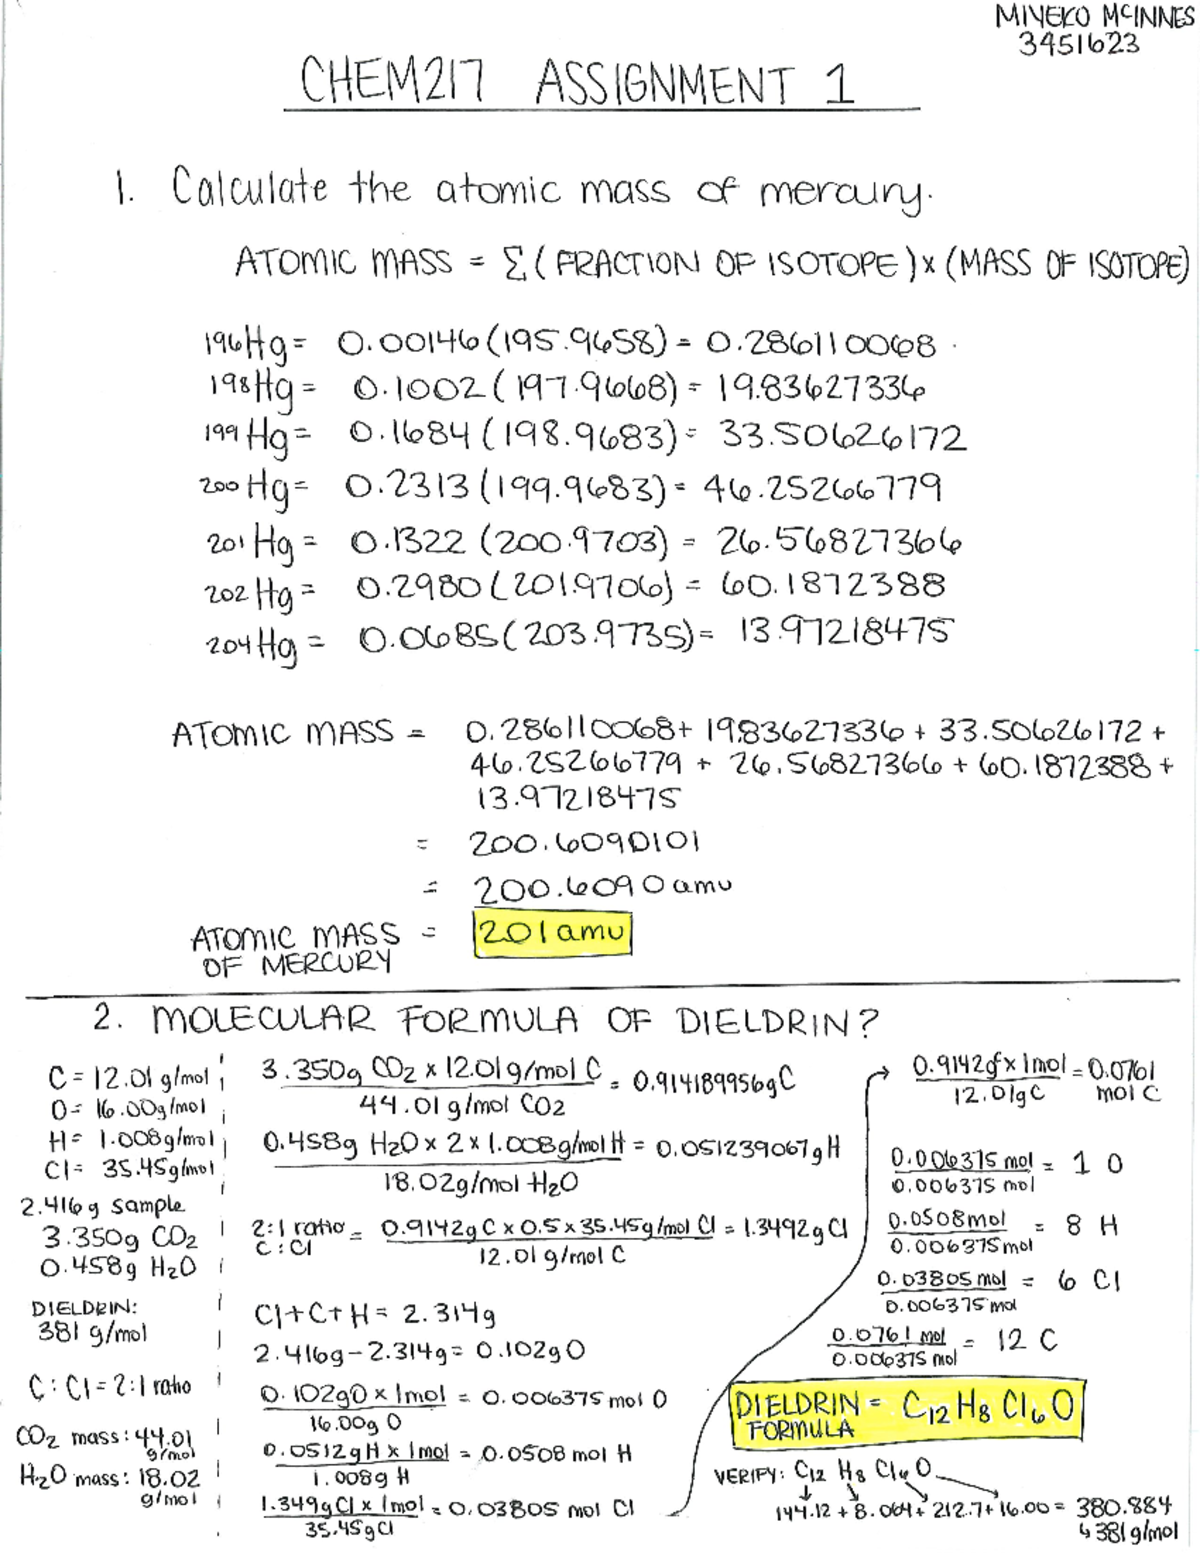 MIYEKO McINNES
3451623
CHEM217 ASSIGNMENT 1
1. Calculate the atomic mass of mercury.
ATOMIC MASS = Σ (FRACTION OF ISOTOPE) x (MASS OF ISOTOPE)
196Hg = 0.00146(195.9658) = 0.286110068
198Hg = 0.1002(197.9668) = 19.83627336
199Hg = 0.1684(198.9683) = 33.50626172
200Hg = 0.2313(199.9683) = 46.25266779
201Hg = 0.1322(200.9703) = 26.56827366
202Hg = 0.2980(201.9706) = 60.1872388
204Hg = 0.0685(203.9735) = 13.97218475
ATOMIC MASS = 0.286110068 + 19.83627336 + 33.50626172 +
46.25266779 + 26.56827366 + 60.1872388 +
13.97218475
= 200.6090101
= 200.6090 amu
ATOMIC MASS = 201 amu
OF MERCURY
2. MOLECULAR FORMULA OF DIELDRIN?
C = 12.01 g/mol
O = 16.00g/mol
H = 1.008g/mol
Cl = 35.45g/mol
2.416g sample
3.350g CO2
0.458g H2O
DIELDRIN:
381 g/mol
C : Cl = 2:1 ratio
CO2 mass: 44.01
g/mol
H2O mass: 18.02
g/mol
3.350g CO2 x 12.01g/mol C = 0.914189956gC
44.01g/mol CO2
0.458g H2O x 2 x 1.008g/mol H = 0.051239067gH
18.02g/mol H2O
2:1 ratio = 0.9142gC x 0.5 x 35.45g/mol Cl = 1.3492gCl
C : Cl 12.01 g/mol C
Cl + C + H = 2.314g
2.416g - 2.314g = 0.102g O
0.102gO x 1mol = 0.006375 mol O
16.00g O
0.0512gH x 1mol = 0.0508 mol H
1.008g H
1.349gCl x 1mol = 0.03805 mol Cl
35.45gCl
0.9142g x 1mol = 0.0761
12.01gC mol C
0.006375 mol = 1 O
0.006375 mol
0.0508mol = 8 H
0.006375mol
0.03805 mol = 6 Cl
0.006375 mol
0.0761 mol = 12 C
0.006375 mol
DIELDRIN = C12 H8 Cl6 O
FORMULA
VERIFY: C12 H8 Cl6 O
144.12 + 8.064 + 212.7 + 16.00 = 380.884
↳ 381g/mol